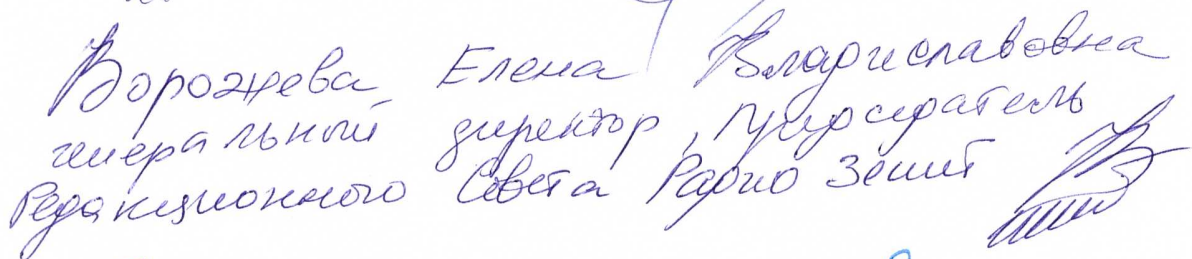 Ворожева Елена Владиславовна
генеральный директор, Председатель
Редакционного Совета Радио Зенит